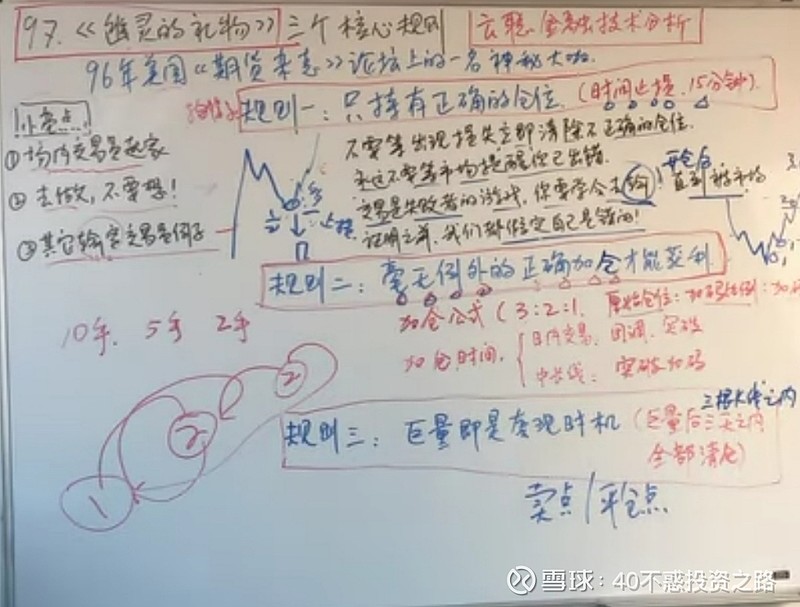 97.《幽灵的礼物》三个核心规则
云聪金融技术分析
96年美国《期货杂志》论坛上的一名神秘大咖.
规则一：只持有正确的仓位.(时间止损.15分钟).
不要等出现损失立即清除不正确的仓位.
永远不要等市场提醒你已出错.
交易是失败者的游戏，你要学会去输！开仓后 直到被市场
证明之前，我们都假定自己是错的！
小亮点
①场内交易员起家
②去做，不要想！
③其它输客交易员例子
止损
规则二：毫无例外的正确加仓才能获利.
加仓公式(3:2:1. 原始仓位:加码比例:加
加仓时间. 日内交易.回调.突破
中长线：突破加码
10手. 5手 2手
1
2
2
规则三：巨量即是套现时机(巨量后三天之内
三根K线之内
全部清仓)
卖点/平仓点
雪球：40不惑投资之路